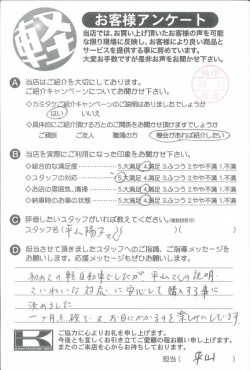 軽
お客様アンケート
当店では、お買い上げ頂いたお客様の声を可能
な限り現場に反映し、お客様により良い商品と
サービスを提供する事に努めています。
大変お手数ですが是非お声をお聞かせ下さい。
A 当店はご紹介を大切にしております。
ご紹介キャンペーンについてお聞かせ下さい。
◇カミタケご紹介キャンペーンのご説明はありましたでしょうか
はい いいえ
◇具体的にご紹介頂ける方とのご関係をお聞かせ頂けますでしょうか
ご親族 ご友人 職場の方 機会があれば紹介したい
B 当店を実際にご利用になった印象をお聞かせ下さい。
◇総合的な満足度 5.大満足 4.満足 3.ふつう 2.やや不満 1.不満
◇スタッフの対応 5.大満足 4.満足 3.ふつう 2.やや不満 1.不満
◇お店の雰囲気、清掃 5.大満足 4.満足 3.ふつう 2.やや不満 1.不満
◇納車時のお車の状態 5.大満足 4.満足 3.ふつう 2.やや不満 1.不満
C 評価したいスタッフがいれば教えてください。
スタッフ名( 平山
D 担当させて頂きましたスタッフへのご指摘、ご指導メッセージをお
願いします。応援メッセージもぜひお願いします。
初めての軽自動車でしたが 平山さんの説明
ていねいな対応に安心して購入する事に
決めました
お目にかかる日を楽しみにしています。
ご協力に心よりお礼を申し上げます。
今後とも宜しくお引き立てご愛顧の程お願い申し上げます。
またのご来店を心からお待ちしております。
担当( 平山 )